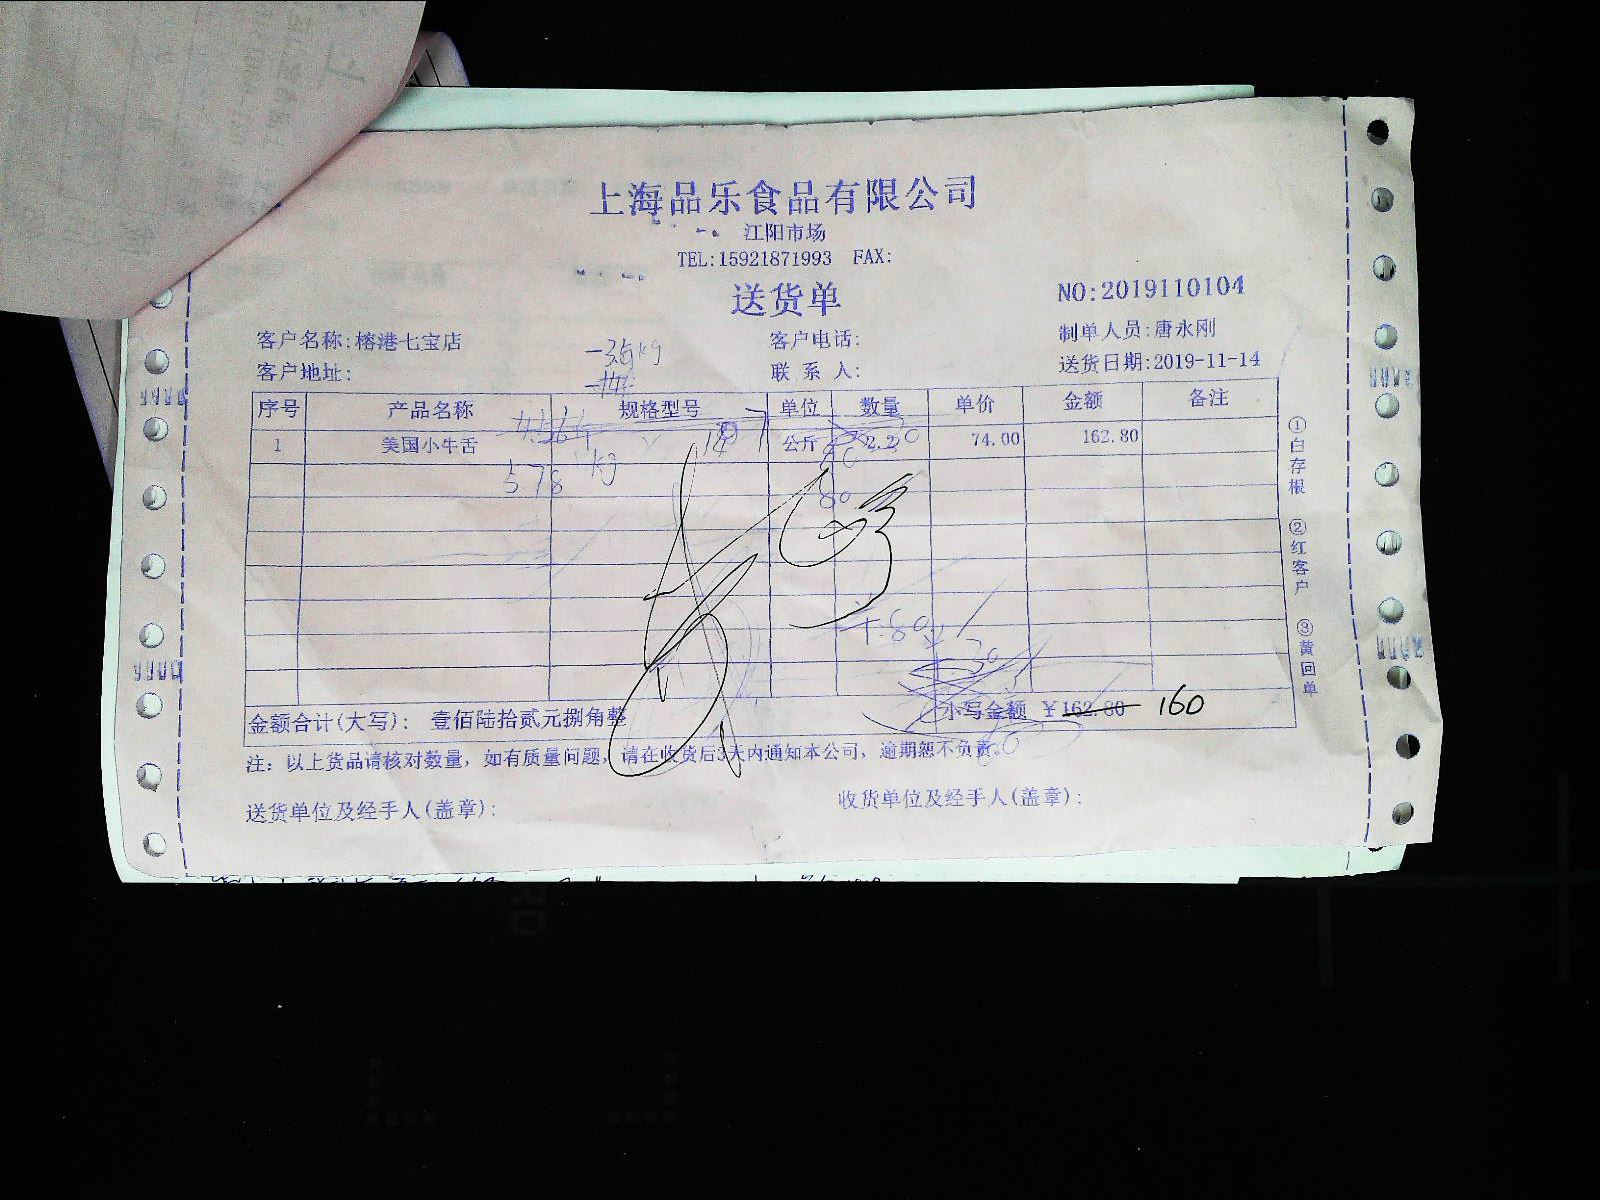 上海品乐食品有限公司
江阳市场
TEL:15921871993 FAX:
送货单
NO:2019110104
客户名称:榕港七宝店 客户电话: 制单人员:唐永刚
客户地址: 联 系 人: 送货日期:2019-11-14
序号 产品名称 规格型号 单位 数量 单价 金额 备注
1 美国小牛舌 公斤 2.20 74.00 162.80
5.78 kg
80
金额合计(大写): 壹佰陆拾贰元捌角整 小写金额 ¥162.80 160
注: 以上货品请核对数量, 如有质量问题, 请在收货后3天内通知本公司, 逾期恕不负责。
送货单位及经手人(盖章): 收货单位及经手人(盖章):
①白存根 ②红客户 ③黄回单